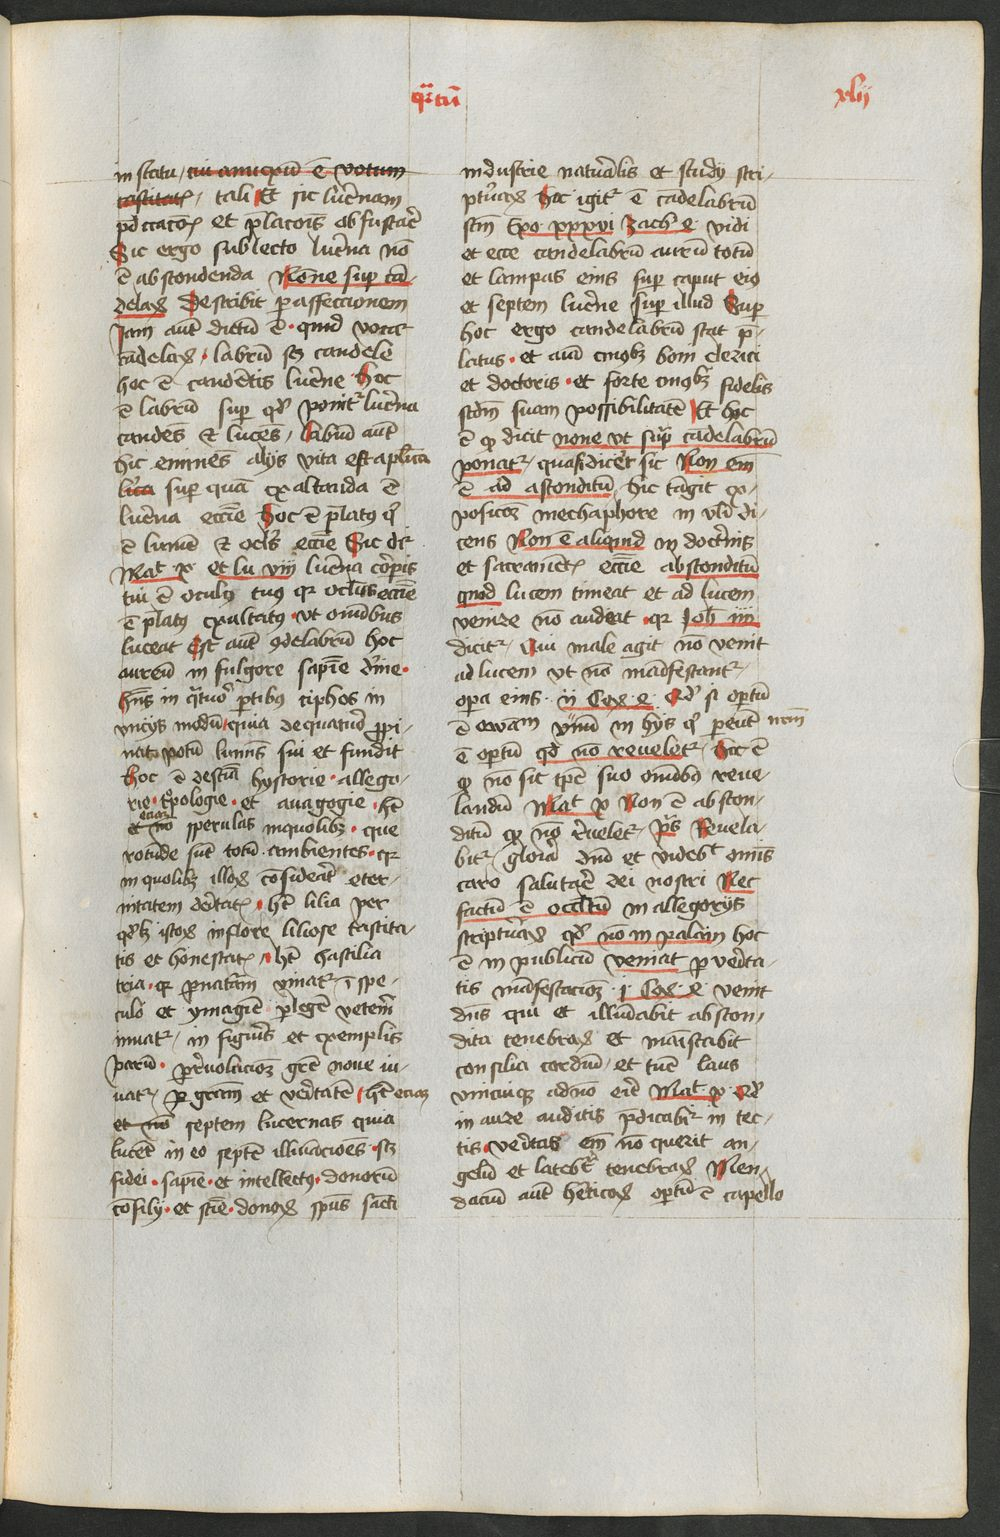 q̄rtū
xlij
in statu / cui annexū ē votum
castitatꝭ / tali Et sic lucernam
pdicacōꝭ et p̄lacoīs abscōdere
Sic ergo sublecto lucerna nō
ē abscondenda None sup cā-
delaꝝ Describit p assercionem
Iam aūt dictū ē · quid vocat
cādelaꝝ · labrū sꝫ candele
hoc ē candētis lucerne hoc
ē labrū sup qd̄ ponitᷣ lucerna
candēs et lucēs / labrū aūt
hic eminēs alijs vita est aplica
lucīa sup quā exaltanda ē
lucerna ecc̄ie Hoc ē p̄latꝰ qͥ
ē lumē et ocl̄s ecc̄ie Sic dr̄
Mat x et lu viij lucerna corpīs
tui ē oculꝰ tuꝰ qr oclūs ecc̄ie
ē p̄latꝰ exaltatꝰ · vt omībus
luceat Est aūt ꝯdelabrū hoc
aureū in fulgore sapīe dīne ·
hn̄s in q̄tuor ptibꝰ ciphos in
nucis modū quia de quatuor ppi-
nat potū luminis sui et fundit
hoc ē de sensu hystorie · allego-
rie · tropologie · et anagogie · hꝫ
eciaꝫ
et nō sperulas in quolibꝫ · que
rotūde sūt totū ambientes · qr
in quolibꝫ illoꝝ cōsiderat eter-
nitatem deitatꝭ · hꝫ lilia per
qdlꝫ istoꝝ in flore liliose castita-
tis et honestatꝭ · hꝫ hastilia
tria · qr p naturam iuuatᷣ ī spe-
culo et ymagīe p legē vetem̄
iuuatᷣ / in figurīs et exemplis
patrū · p reuolucionē grē noue iu-
uatᷣ p grām et veritatē hꝫ eciaꝫ
et nō septem lucernas quia
lucēt in eo septē illuminacōes · sꝫ
fidei · sapīe · et intellectꝰ · donorū
cōsilij · et scīe · donoꝝ spūs sācti
industrie naturalis et studij scri-
pturaꝝ Hoc igitᷣ ē cādelabrū
scm̄ Exo xxxvi Zach e vidi
et ecce candelabrū aurū totū
et lampas eius sup caput eiꝰ
et septem lucerne sup illud Sup
hoc ergo candelabrū stat p̄-
latus · et cuiꝰ cuiqꝫ boni clerici
et doctoris · et forte cuiqꝫ fidelis
scdm̄ suam possibilitatē Et hoc
ē qͥ dicit none vt sup cādelabrū
ponatᷣ / quasi diceret sic Non em̄
ē ad asconditū / hic tāgit ex-
posicoꝫ methaphore in vltī di-
cens Non ē aliquid in doctrinis
et sacramētꝭ ecc̄ie absconditū
quod lucem timeat et ad lucem
venire nō audeat · qr Joh iij
dicitᷣ / Qui male agit nō venit
ad lucem vt nō māifestantᷣ
opa eius · ij Coꝝ e Qd̄ si optū
ē ewām vīmū in hijs qͥ pereūt nrm̄
ē optū qd nō reueletᷣ / Hoc ē
qͥ nō sic tpē suo omībꝰ reue-
landū Mat x Non ē abscon-
ditū qͥ nō reueletᷣ / p̄s Reuela-
bitᷣ / gloria dnī et videbit omīs
caro salutare dei nostri Nec
factū ē ocultū in allegorijs
scripturaꝝ qd̄ nō in palam hoc
ē in publicū veniat p verita-
tis māifestacoꝫ j Coꝝ e venit
dn̄s qui et illuminabit abscon-
dita tenebraꝝ et māistabit
consilia cordiū / et tūc laus
vnicuiqꝫ a dno erit Mat x Qd̄
in aure auditis pdicabitᷣ in tec-
tis veritas em̄ nō querit an-
gelū et latebrā tenebraꝝ Men
daciū aūt hēticoꝝ optū ē capello